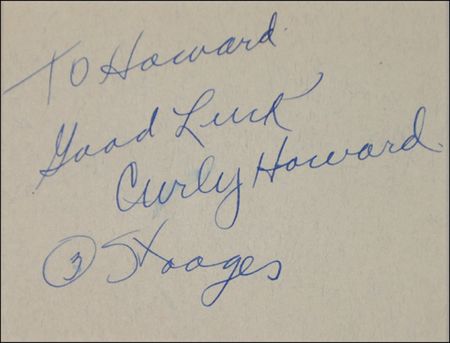 To Howard.
Good Luck
Curly Howard.
3 Stooges